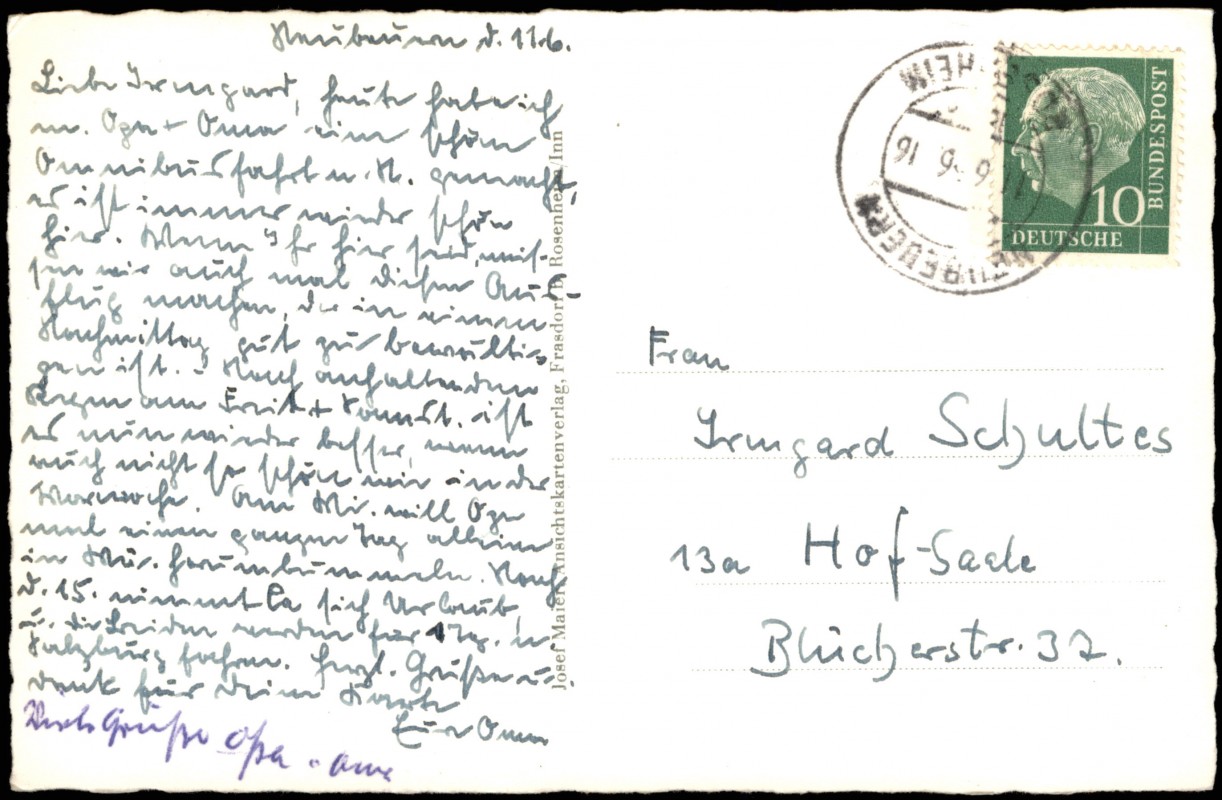 Neubeuern d. 11.6.
Liebe Irmgard, heute habe ich
m. Opa + Oma eine schöne
Omnibusfahrt n. N. gemacht,
es ist immer wieder schön
hier. Wenn Ihr hier seid, müs-
sen wir auch mal diesen Aus-
flug machen, der in einem
Nachmittag gut zu bewälti-
gen ist. Nach anhaltendem
Regen am Freit. + Sonnt. ist
es nun wieder besser, wenn
auch nicht so schön wie in der
Vorwoche. Am Mi. will Opa
mal einen ganzen Tag allein
in Mü. herumbummeln. Nach
d. 15. nimmt sich Urlaub,
u. die Beiden werden für 1 Tg. n.
Salzburg fahren. Herzl. Grüße u.
dank für Deine Karte
Eure Oma
Viele Grüße Opa + Oma
Josef Maier, Ansichtskartenverlag, Frasdorf b. Rosenheim/Inn
NEUBEUERN
HEIM
16
DEUTSCHE
BUNDESPOST
10
Frau
Irmgard Schultes
13a Hof-Saale
Blücherstr. 37.